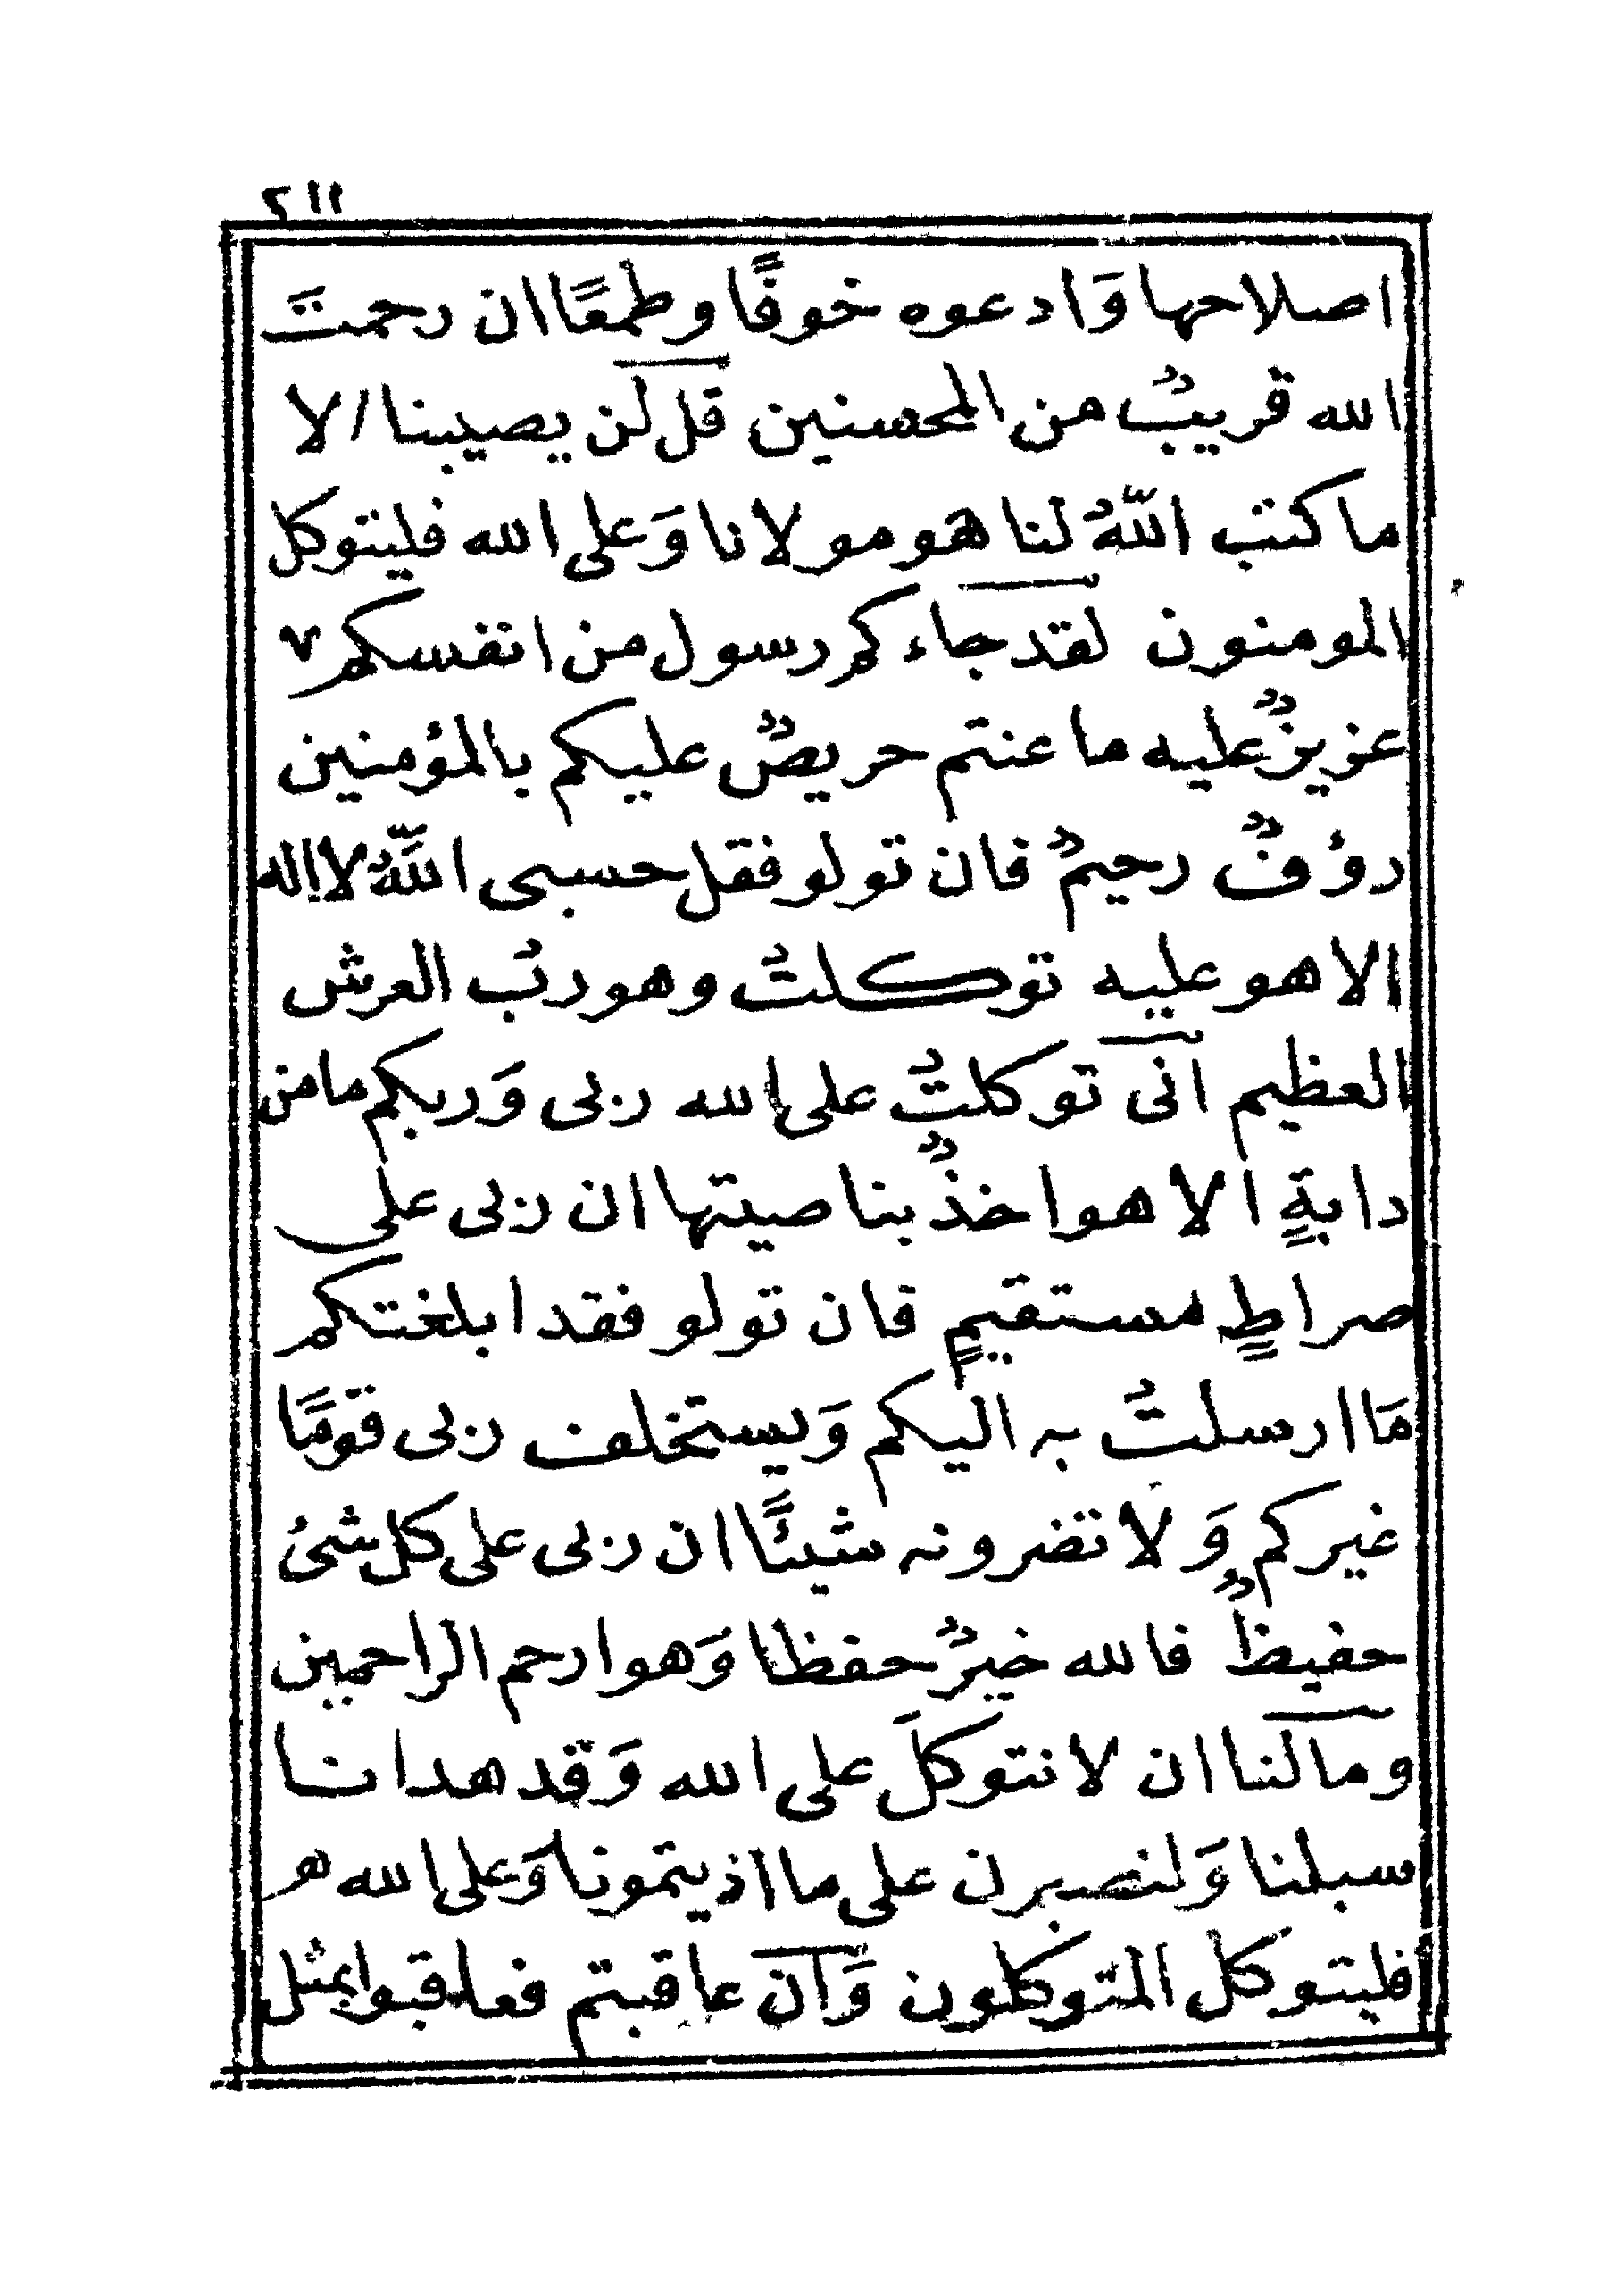 ٢١١
اصلاحها وَادعوه خوفًا وطمعًا ان رحمتَ
الله قريبٌ من المحسنين قل لن يصيبنا الا
ما كتب اللّهُ لنا هو مولانا وَعلى الله فليتوكل
المومنون لقد جاءكم رسول من انفسكم
عزيزٌ عليه ما عنتم حريصٌ عليكم بالمؤمنين
رؤفٌ رحيمٌ فان تولو فقل حسبى اللّهُ لا اله
الا هو عليه توكلتُ وهو ربُ العرش
العظيم انى توكلتُ على الله ربى وَربكم ما من
دابةٍ الا هو اخذٌ بناصيتها ان ربى على
صراطٍ مستقيمٍ فان تولو فقد ابلغتكم
مَا ارسلتُ به اليكم وَيستخلف ربى قومًا
غيركم وَلا تضرونه شيئًا ان ربى على كل شئُ
حفيظٌ فالله خيرٌ حفظا وَهو ارحم الراحمين
وما لنا ان لا نتوكلَ على الله وَقد هدانا
سبلنا وَلنصبرن على ما اذيتمونا وَعلى الله
فليتوكل المتوكلون وَان عاقبتم فعاقبوا بمثل